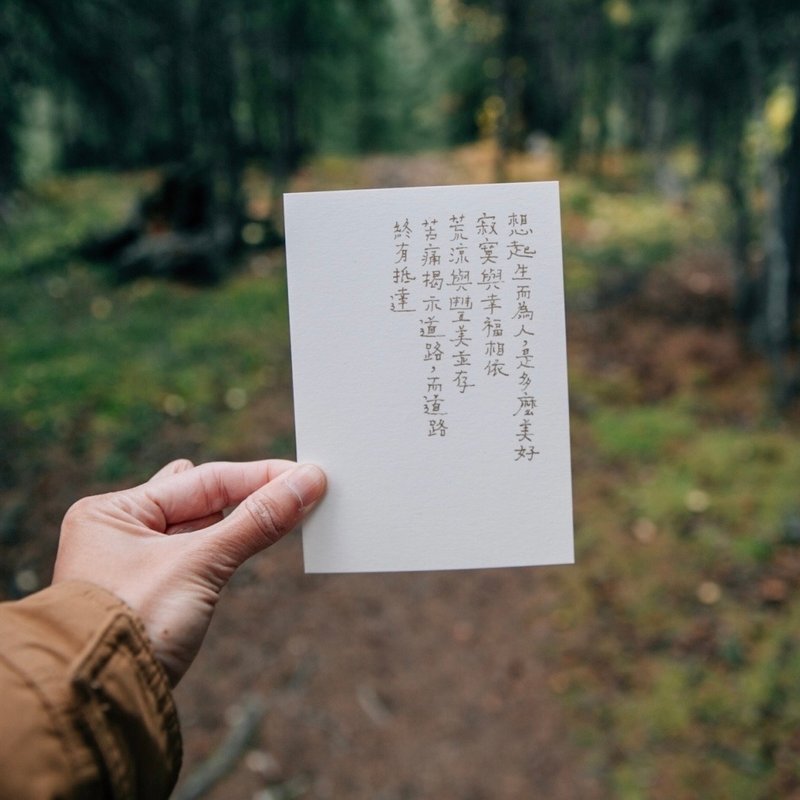 想起生而為人，是多麼美好
寂寞與幸福相依
荒涼與豐美並存
苦痛揭示道路，而道路
終有抵達